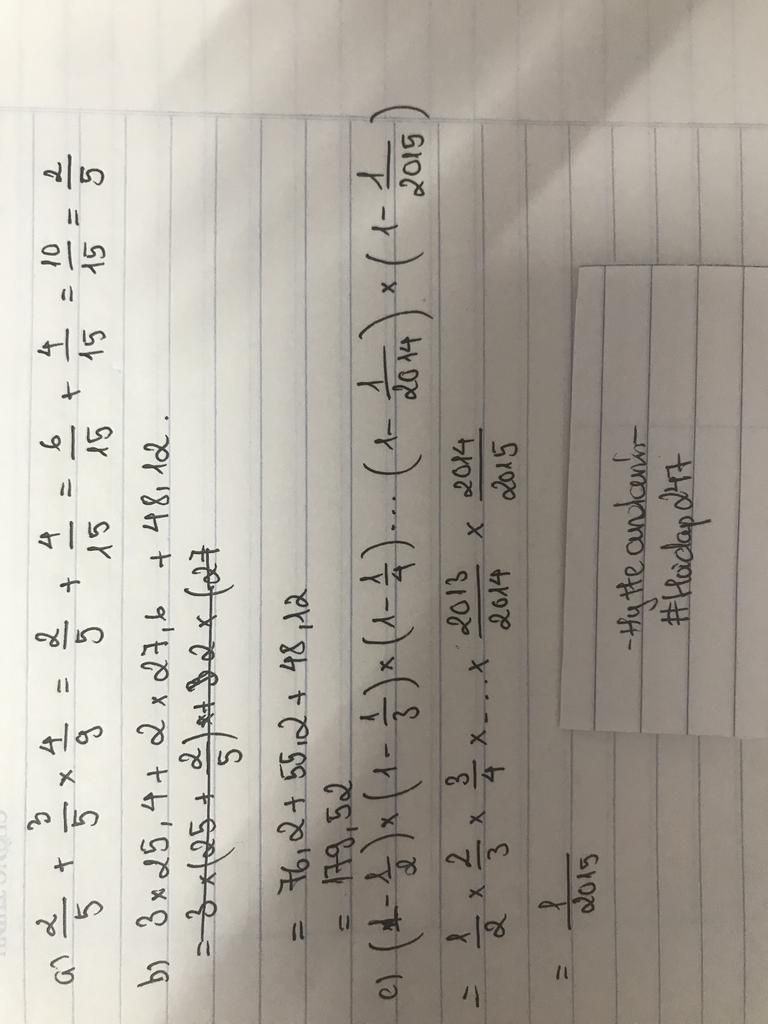 a) 2/5 + 3/5 × 4/9 = 2/5 + 4/15 = 6/15 + 4/15 = 10/15 = 2/5
b) 3 × 25,4 + 2 × 27,6 + 48,12.
= 3 × (25 + 2/5) + 2 × (27
= 76,2 + 55,2 + 48,12
= 179,52
c) (1 - 1/2) × (1 - 1/3) × (1 - 1/4) .... (1 - 1/2014) × (1 - 1/2015)
= 1/2 × 2/3 × 3/4 × .... × 2013/2014 × 2014/2015
= 1/2015
#Hoidap247